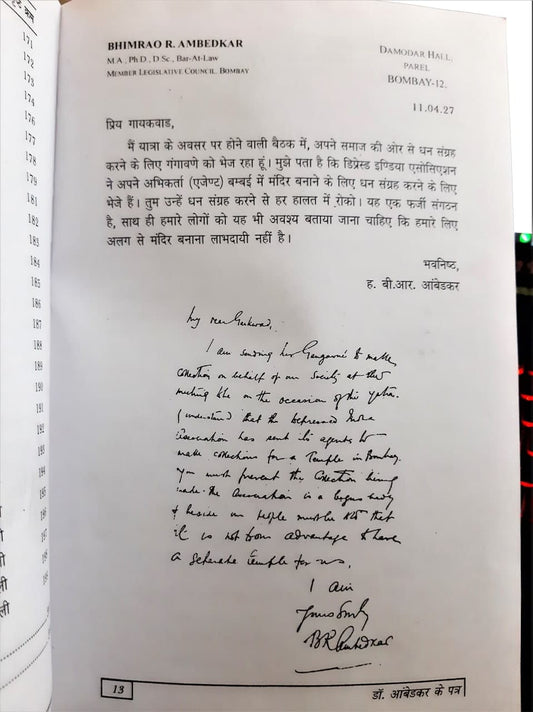 171
172
173
174
176
177
178
179
181
182
183
184
185
187
188
189
190
191
192
193
194
195
196
197
198
BHIMRAO R. AMBEDKAR
M.A., Ph.D., D.Sc., Bar-At-Law
MEMBER LEGISLATIVE COUNCIL, BOMBAY
DAMODAR HALL,
PAREL
BOMBAY-12.
11.04.27
प्रिय गायकवाड,
मैं यात्रा के अवसर पर होने वाली बैठक में, अपने समाज की ओर से धन संग्रह
करने के लिए गंगावणे को भेज रहा हूं। मुझे पता है कि डिप्रेस्ड इण्डिया एसोसिएशन
ने अपने अभिकर्ता (एजेण्ट) बम्बई में मंदिर बनाने के लिए धन संग्रह करने के लिए
भेजे हैं। तुम उन्हें धन संग्रह करने से हर हालत में रोको। यह एक फर्जी संगठन
है, साथ ही हमारे लोगों को यह भी अवश्य बताया जाना चाहिए कि हमारे लिए
अलग से मंदिर बनाना लाभदायी नहीं है।
भवनिष्ठ,
ह. बी.आर. आंबेडकर
My dear Gaikwad,
I am sending Mr Gangawné to make
collection on behalf of our Society at the
meeting on the occasion of the yatra.
I understand that the Depressed India
Association has sent its agents to
make collections for a Temple in Bombay.
You must prevent the collection being
made. The Association is a bogus body
& beside our people must be told that
it is not to our advantage to have
a separate temple for us.
I am
Yours Sincerely
BR Ambedkar
13
डॉ. आंबेडकर के पत्र